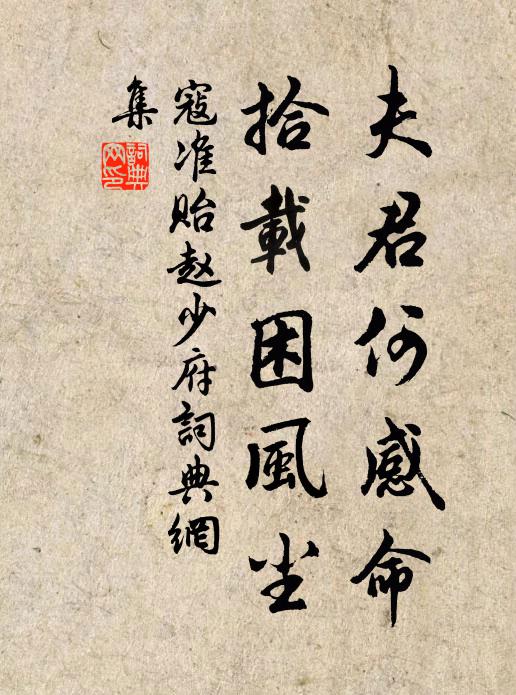 夫君何感命
拾載困風尘
寇准貽赵少府詞典網
集
詞典網印